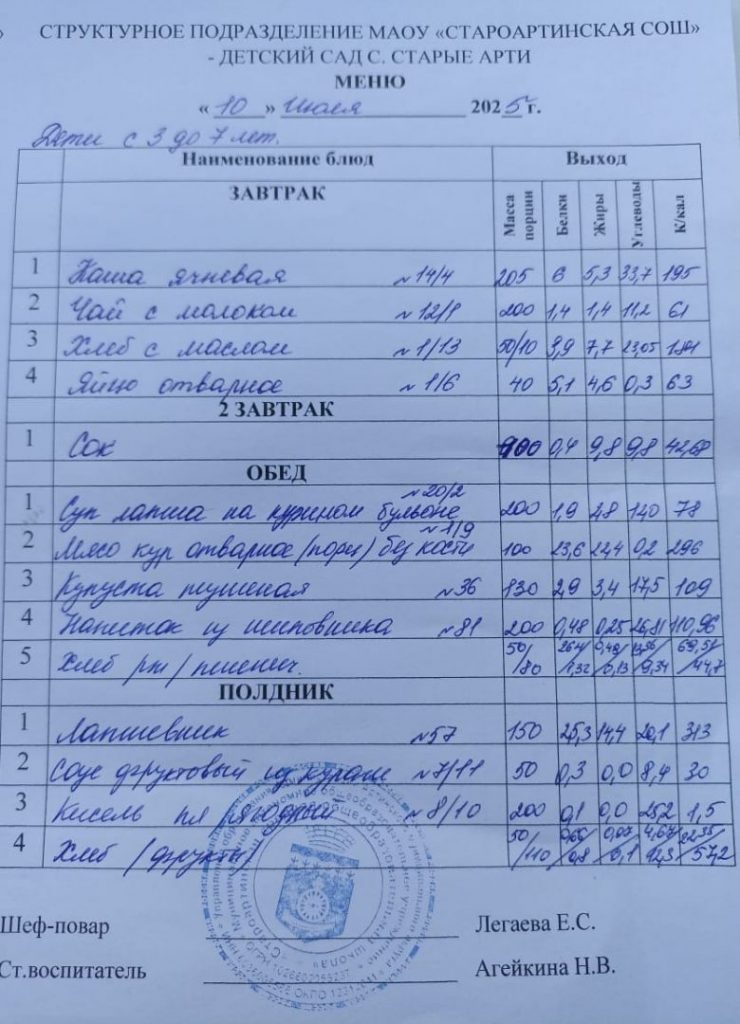 СТРУКТУРНОЕ ПОДРАЗДЕЛЕНИЕ МАОУ «СТАРОАРТИНСКАЯ СОШ»
- ДЕТСКИЙ САД С. СТАРЫЕ АРТИ
МЕНЮ
« 10 » Июля 2025 г.
Дети с 3 до 7 лет.
Наименование блюд Выход
ЗАВТРАК Масса порции Белки Жиры Углеводы К/кал
1 Каша ячневая №14/4 205 6 5,3 33,7 195
2 Чай с молоком №12/1 200 1,4 1,4 11,2 61
3 Хлеб с маслом №1/13 50/10 3,9 7,7 23,05
4 Яйцо отварное №1/6 40 5,1 4,6 0,3 63
2 ЗАВТРАК
1 Сок 100 0,4 9,8 9,8 42,68
ОБЕД
№20/2
1 Суп лапша на курином бульоне 200 1,9 2,8 12,0 78
№1/9
2 Мясо кур отварное (порц) без кости 100 23,6 22,4 0,2 296
3 Купуста тушеная №36 130 2,9 3,4 17,5 109
4 Напиток из шиповника №81 200 0,48 0,25 26,81 110,96
5 Хлеб рж / пшенич. 50/80 1,32 0,13 9,34 44,7
ПОЛДНИК
1 Лапшевник №57 150 25,3 14,4 20,1 313
2 Соус фруктовый из кураги №7/11 50 0,3 0,0 8,4 30
3 Кисель пл ягодный №8/10 200 0,1 0,0 25,2 1,5
4 Хлеб / фрукты 50/110 0,66/0,8 0,07/0,1 4,67/12,3 22,35/57,2
Шеф-повар Легаева Е.С.
Ст.воспитатель Агейкина Н.В.